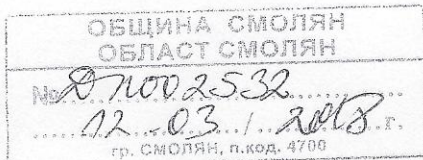 ОБЩИНА СМОЛЯН
ОБЛАСТ СМОЛЯН
№ ДП002532
12.03 / 2018 г.
гр. СМОЛЯН, п.код. 4700